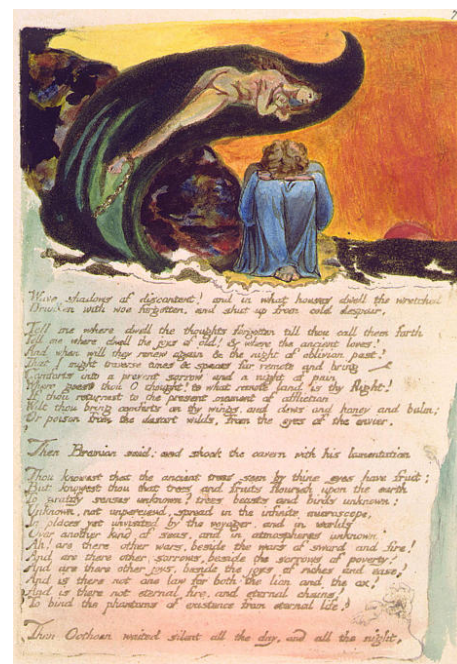 7
Wave shadows of discontent? and in what houses dwell the wretched
Drunken with woe forgotten, and shut up from cold despair.
Tell me where dwell the thoughts forgotten till thou call them forth
Tell me where dwell the joys of old! & where the ancient loves?
And when will they renew again & the night of oblivion past?
That I might traverse times & spaces far remote and bring
Comforts into a present sorrow and a night of pain
Where goest thou O thought! to what remote land is thy flight?
If thou returnest to the present moment of affliction
Wilt thou bring comforts on thy wings and dews and honey and balm;
Or poison from the desart wilds, from the eyes of the envier.
Then Bromion said: and shook the cavern with his lamentation
Thou knowest that the ancient trees seen by thine eyes have fruit;
But knowest thou that trees and fruits flourish upon the earth
To gratify senses unknown? trees beasts and birds unknown:
Unknown, not unpercievd, spread in the infinite microscope,
In places yet unvisited by the voyager. and in worlds
Over another kind of seas, and in atmospheres unknown
Ah! are there other wars, beside the wars of sword and fire!
And are there other sorrows, beside the sorrows of poverty!
And are there other joys, beside the joys of riches and ease?
And is there not one law for both the lion and the ox?
And is there not eternal fire, and eternal chains?
To bind the phantoms of existence from eternal life?
Then Oothoon waited silent all the day, and all the night,